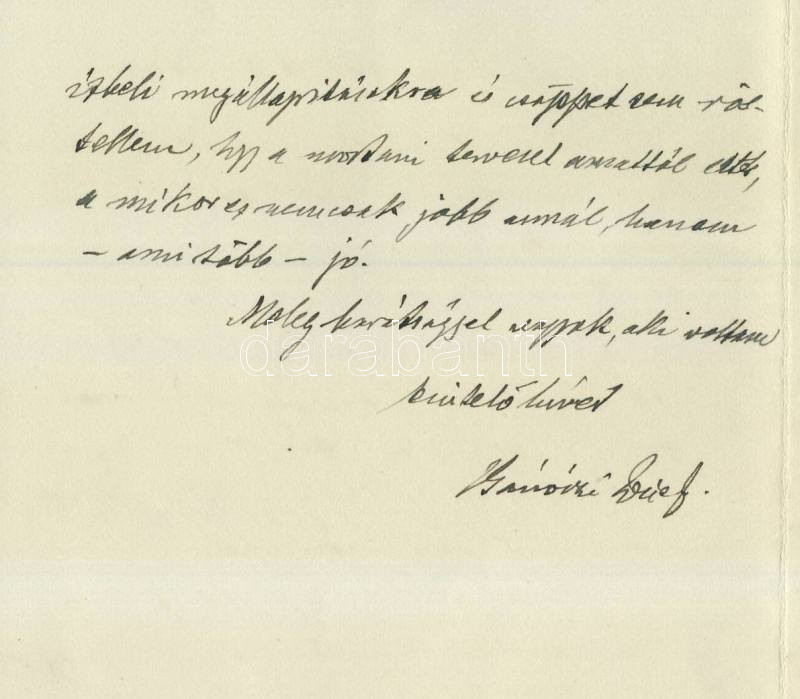 ízbeli megállapításokra és csöppet sem rös-
tellem, hogy a mostani tervezet amattól eltér,
a mikor ez nemcsak jobb annál, hanem
– ami több – jó.
Meleg barátsággal vagyok, aki voltam
tisztelő híved
Bánóczi József.
darabanth